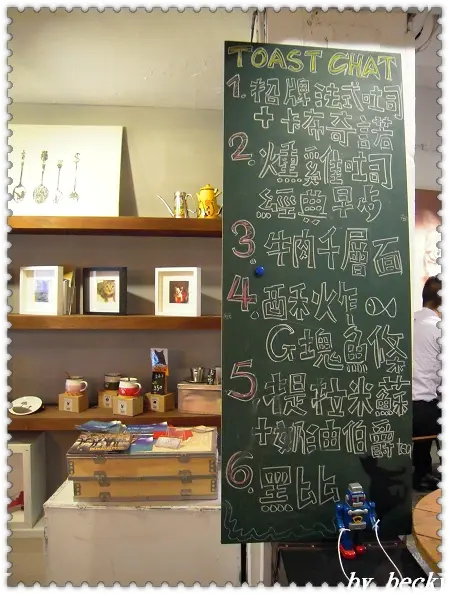 TOAST CHAT
1. 招牌法式吐司
+卡布奇諾
2. 燻雞吐司
經典早步
3. 牛肉千層面
4. 酥炸
G塊魚條
5. 提拉米蘇
+奶油伯爵
6. 黑比
by becky